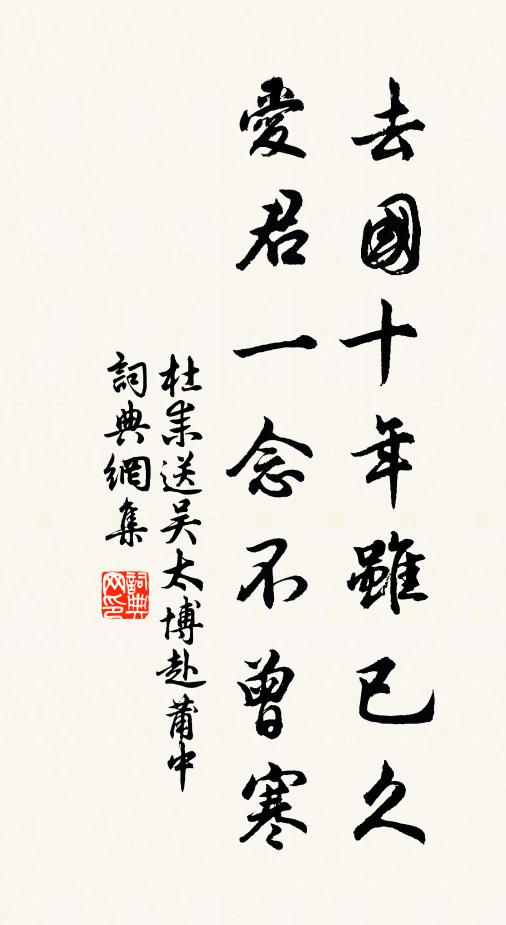 去國十年雖已久
愛君一念不曾寒
杜耒送吴太博赴莆中
詞典網集
詞典网印